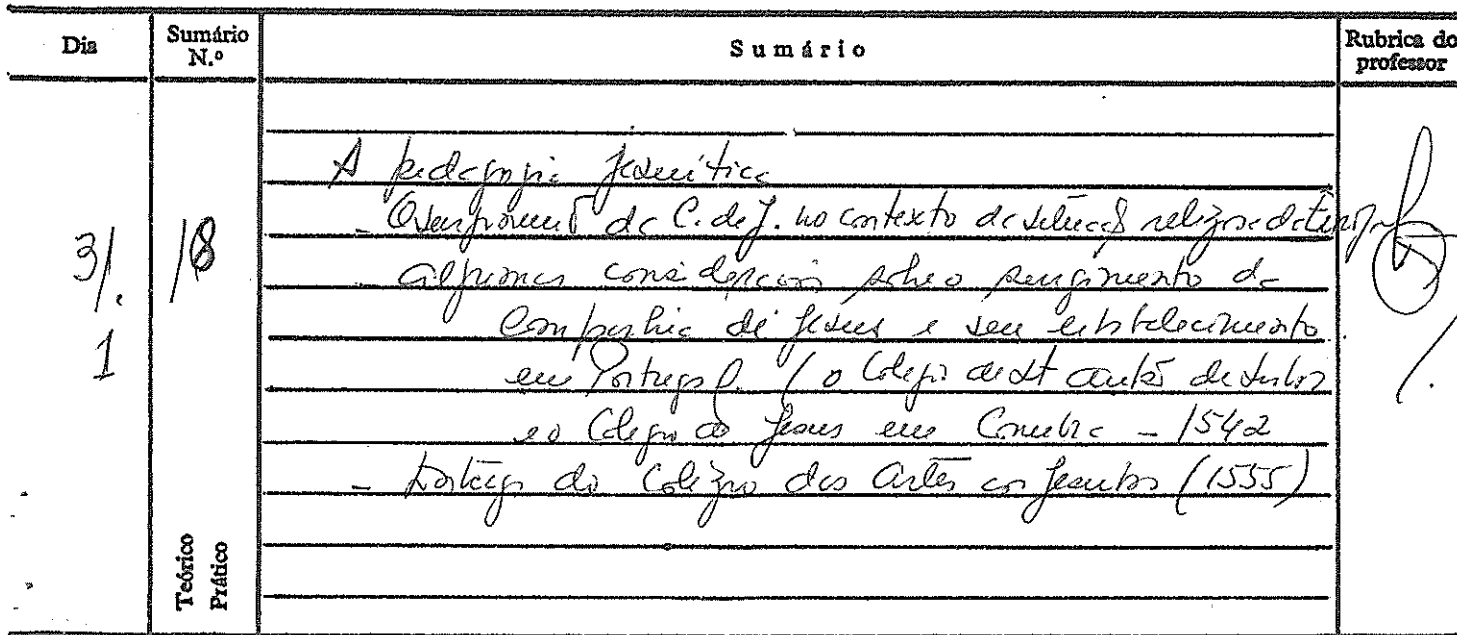 Dia
Sumário N.º
Sumário
Rubrica do professor
31.
1
18
A pedagogia jesuítica
- O surgimento da C. de J. no contexto da situação religiosa da
- Algumas considerações sobre o surgimento da
Companhia de Jesus e seu estabelecimento
em Portugal. (o Colégio de Stº Antão de Lisboa
e o Colégio de Jesus em Coimbra - 1542
- Entrega do Colégio das Artes aos Jesuítas (1555)
Teórico
Prático